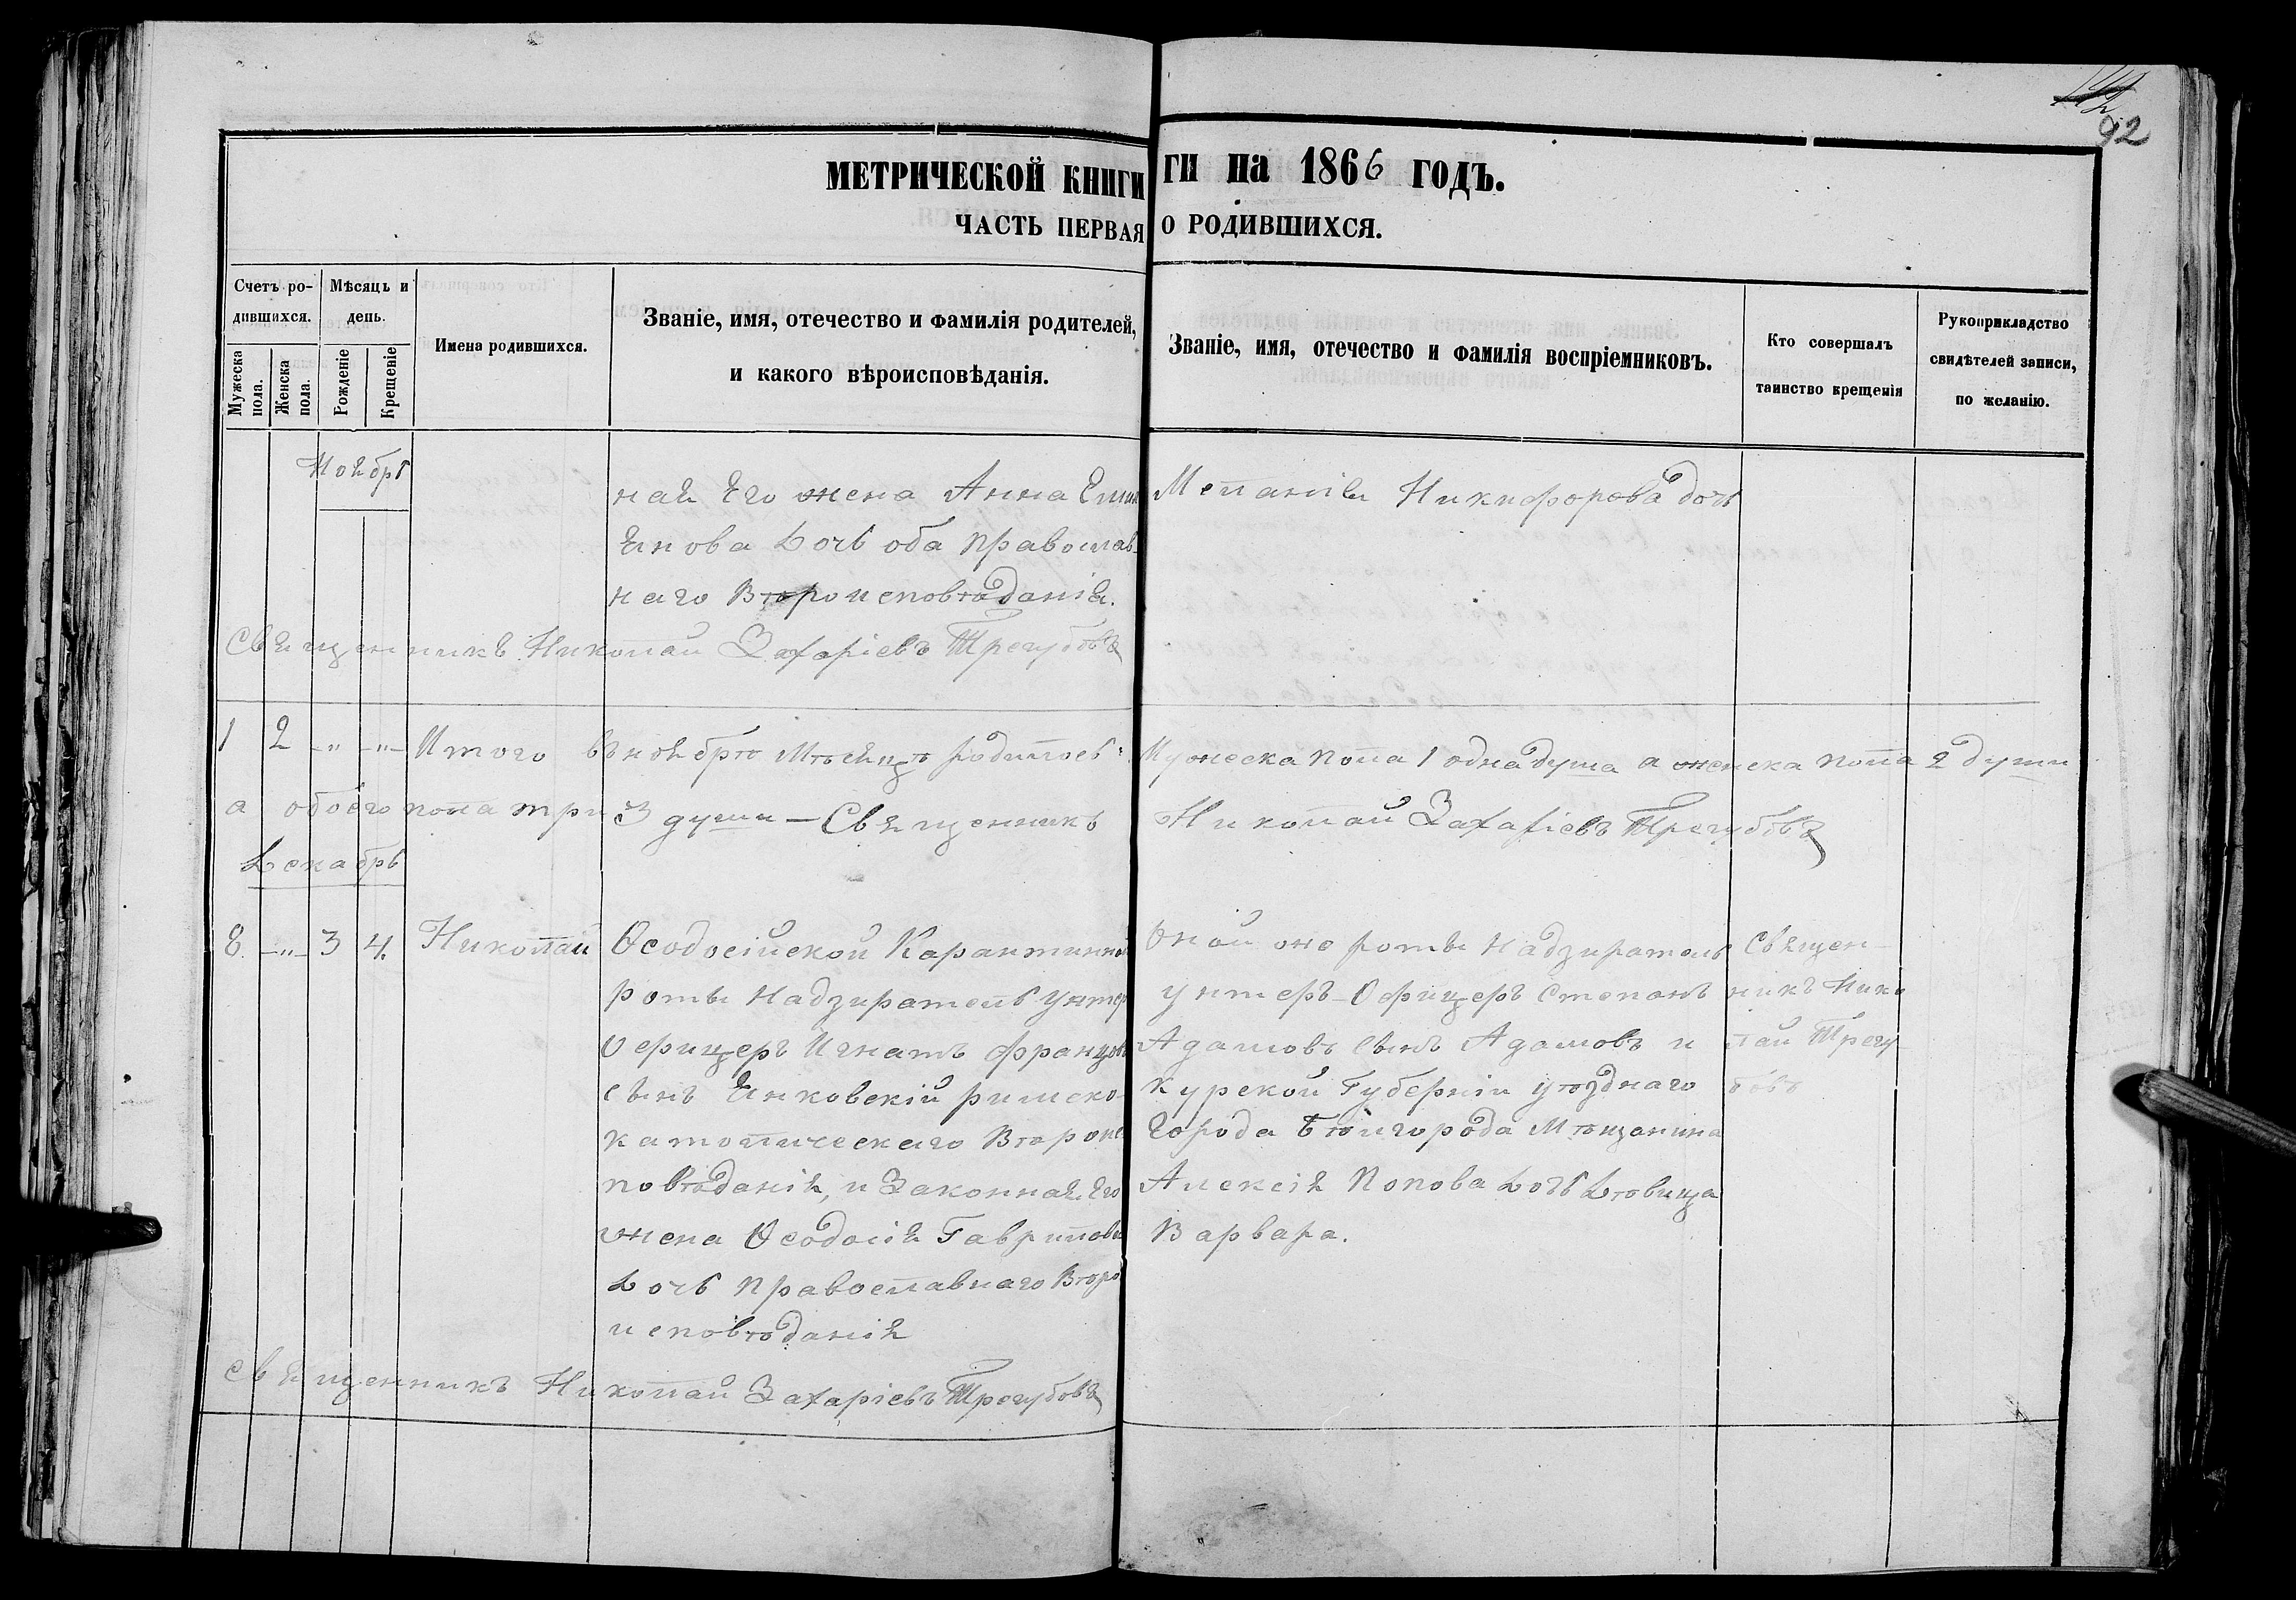 92
МЕТРИЧЕСКОЙ КНИГИ
ГИ на 1866 ГОДЪ.
ЧАСТЬ ПЕРВАЯ
О РОДИВШИХСЯ.
Счетъ ро-
дившихся.
Мужеска
пола.
Женска
пола.
Мѣсяцъ и
день.
Рожденіе
Крещеніе
Имена родившихся.
Званіе, имя, отечество и фамилія родителей,
и какого вѣроисповѣданія.
Званіе, имя, отечество и фамилія воспріемниковъ.
Кто совершалъ
таинство крещенія
Рукоприкладство
свидѣтелей записи,
по желанію.
Ноябрь
ная Его жена Анна
янова Дочь оба православ-
наго Вѣроисповѣданія.
Меланія Никифорова дочь
Священникъ Николай Захаріевъ Трегубовъ
1 2 -„- -„- Итого въ ноябрѣ Мѣсяцѣ родилось: Мужеска пола 1 одна душа а женска пола 2 души
а обоего пола три 3 души — Священникъ Николай Захаріевъ Трегубовъ
Декабрь
8. -„- 3 4. Николай
Ѳеодосійской Карантинной
роты Надзиратель унтер
Офицеръ Игнатъ Францовъ
сынъ Янковскій римско-
католическаго Вѣроис
повѣданія, и Законная Его
жена Ѳеодосія Гаврилова
Дочь православнаго Вѣро
исповѣданія
Оной оне роты Надзиратель
унтеръ-Офицеръ Степанъ
Адамовъ сынъ Адамовъ и
Курской Губерніи уѣзднаго
Города Бѣлгорода Мѣщанина
Алексія Попова Дочь Дѣвица
Варвара.
Священ-
никъ Нико
лай Трегу-
бовъ
Священникъ Николай Захаріевъ Трегубовъ